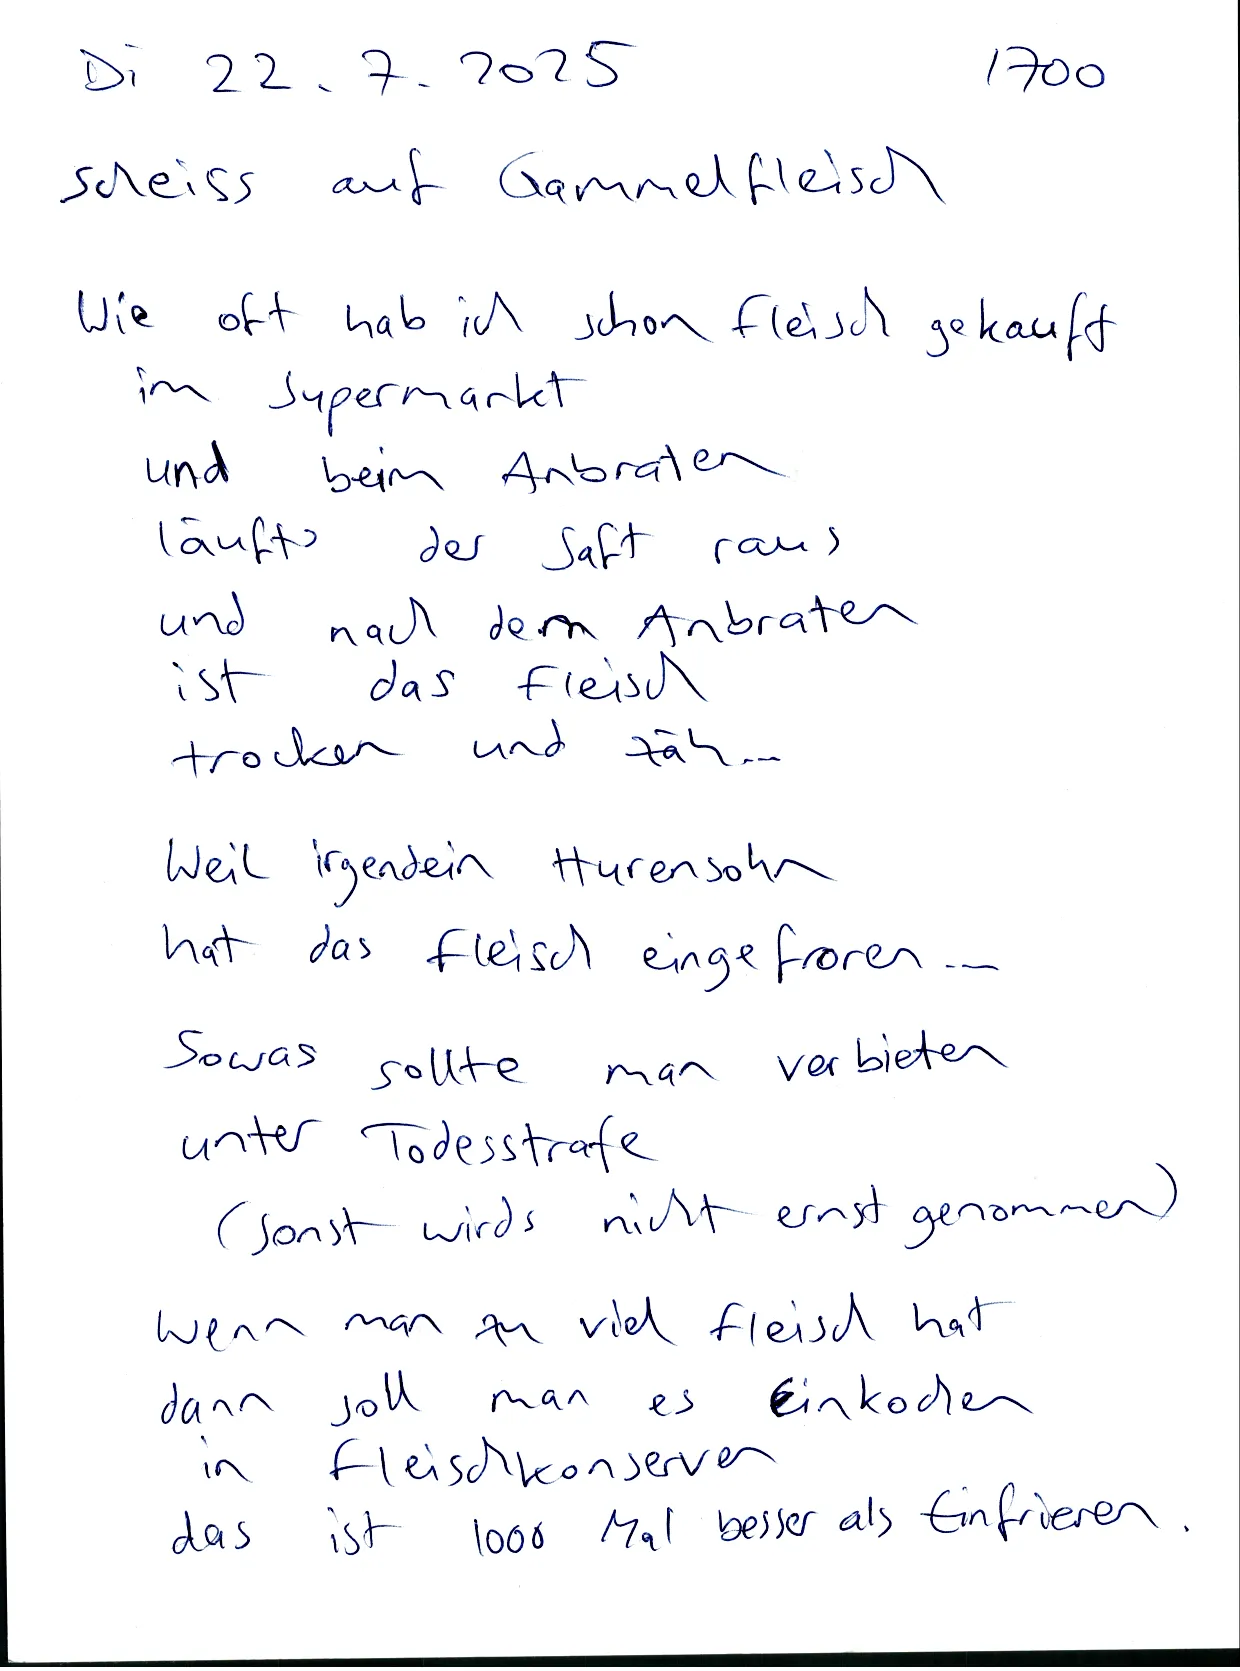 Di 22.7.2025 1700
scheiss auf Gammelfleisch
Wie oft hab ich schon Fleisch gekauft
im Supermarkt
und beim Anbraten
läufts der Saft raus
und nach dem Anbraten
ist das Fleisch
trocken und zäh...
Weil irgendein Hurensohn
hat das Fleisch eingefroren...
Sowas sollte man verbieten
unter Todesstrafe
(sonst wirds nicht ernst genommen)
Wenn man zu viel Fleisch hat
dann soll man es Einkochen
in Fleischkonserven
das ist 1000 Mal besser als Einfrieren.